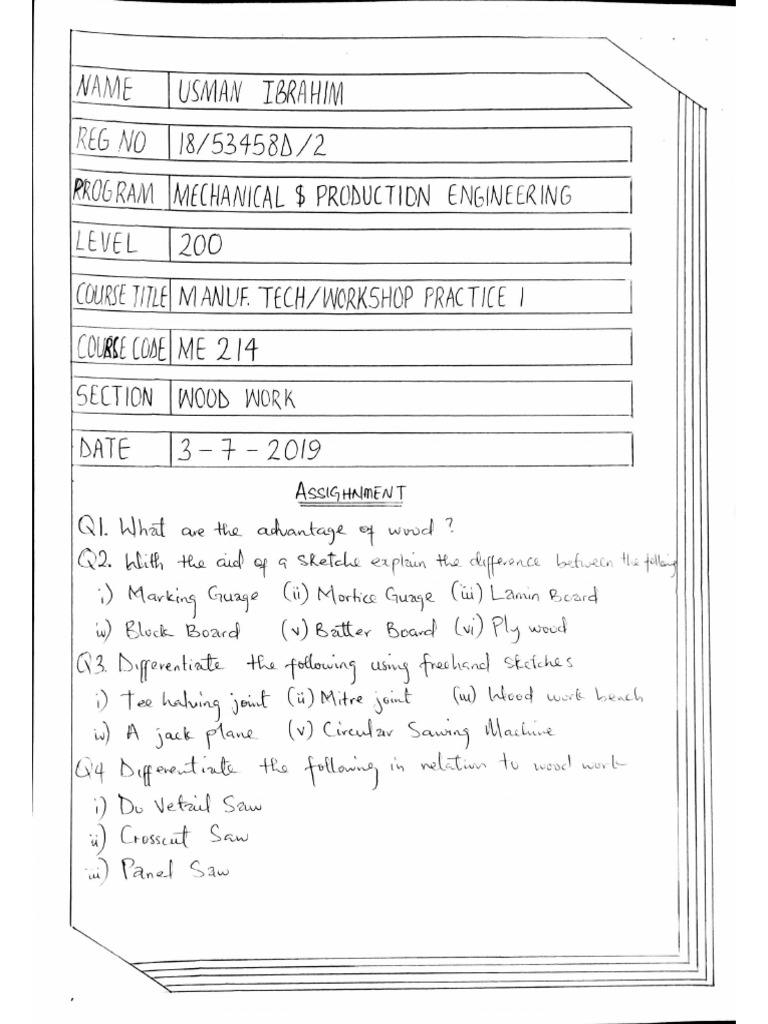 NAME USMAN IBRAHIM
REG NO 18/53458D/2
PROGRAM MECHANICAL $ PRODUCTION ENGINEERING
LEVEL 200
COURSE TITLE MANUF. TECH/WORKSHOP PRACTICE 1
COURSE CODE ME 214
SECTION WOOD WORK
DATE 3-7-2019
ASSIGHNMENT
Q1. What are the advantage of wood?
Q2. With the aid of a sketche explain the difference between the following
i) Marking Guage (ii) Mortice Guage (iii) Lamin Board
iv) Block Board (v) Batter Board (vi) Ply wood
Q3. Differentiate the following using freehand sketches
i) Tee halving joint (ii) Mitre joint (iii) Wood work bench
iv) A jack plane (v) Circular Sawing Machine
Q4 Differentiate the following in relation to wood work
i) Do Vetail Saw
ii) Crosscut Saw
iii) Panel Saw